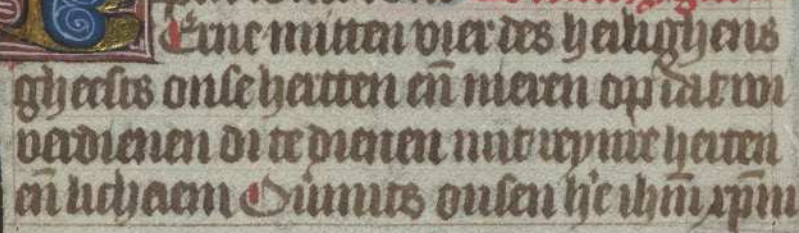 Erne mitten vier des heilighens
gheests onse hertten en̄ nieren op dat wi
verdienen di te dienen mit reynre herten
en̄ lichaem Ouermits onsen h'e ihm̄ xpm̄